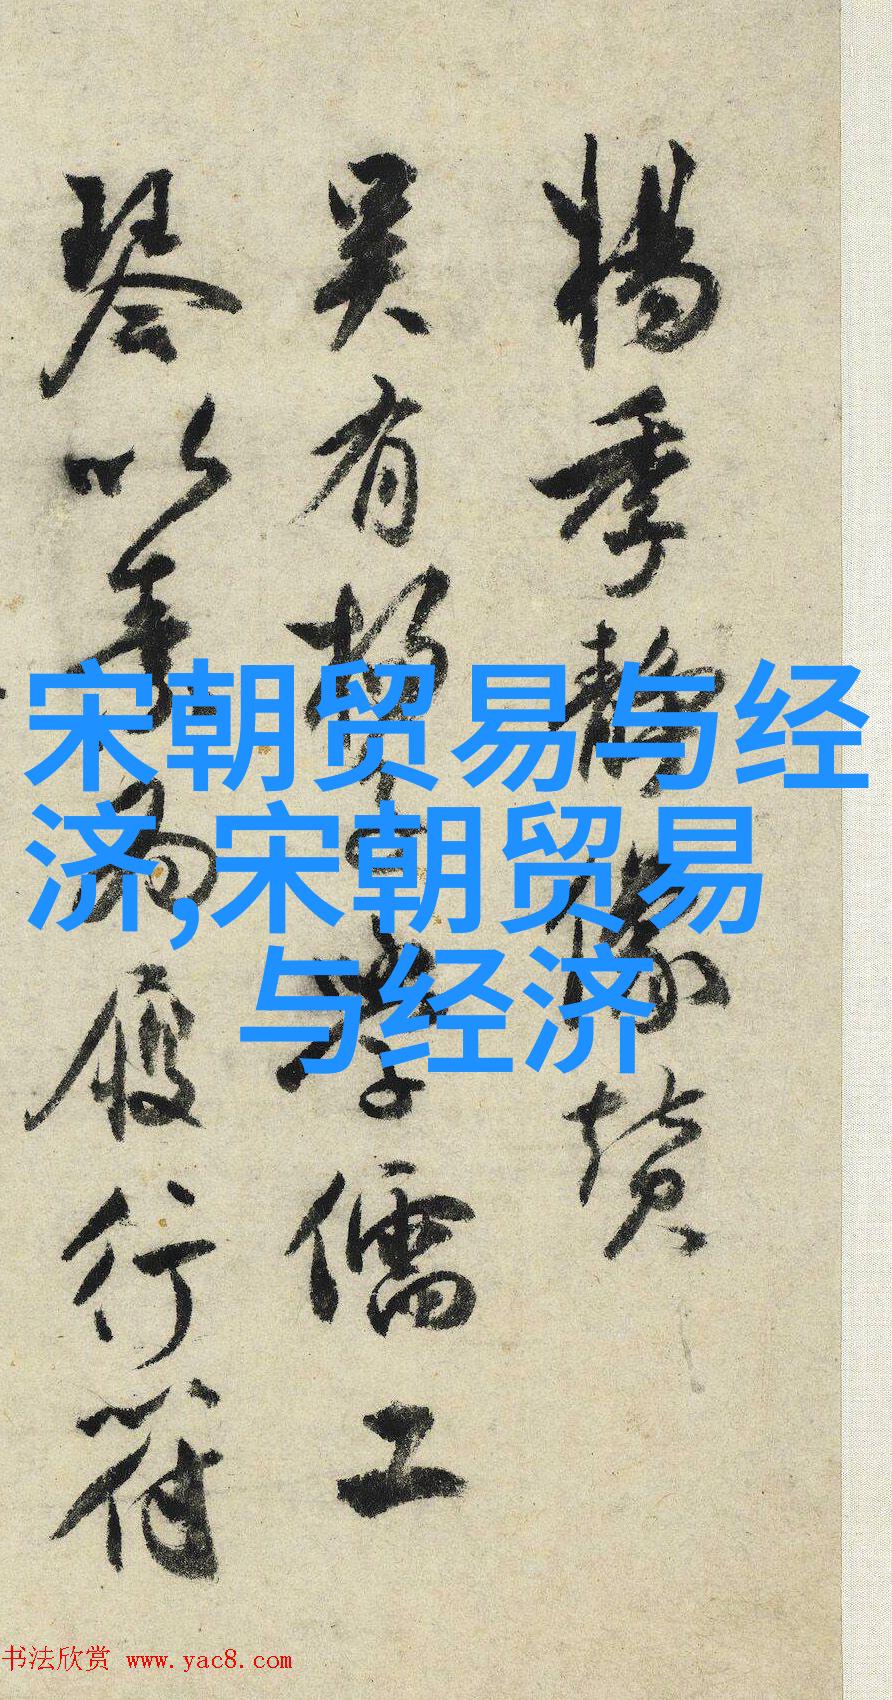 楊季静像贊
吴有楊學儒工
琴以孝為履行符
宋朝贸易与经
济,宋朝贸易
与经济
书法欣赏 www.yac8.com